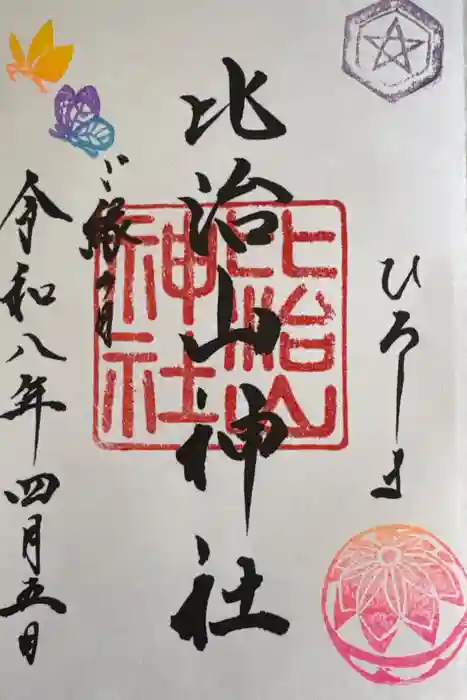 ひろしま
比治山神社
比治山
神社
ご縁の月
令和八年四月五日